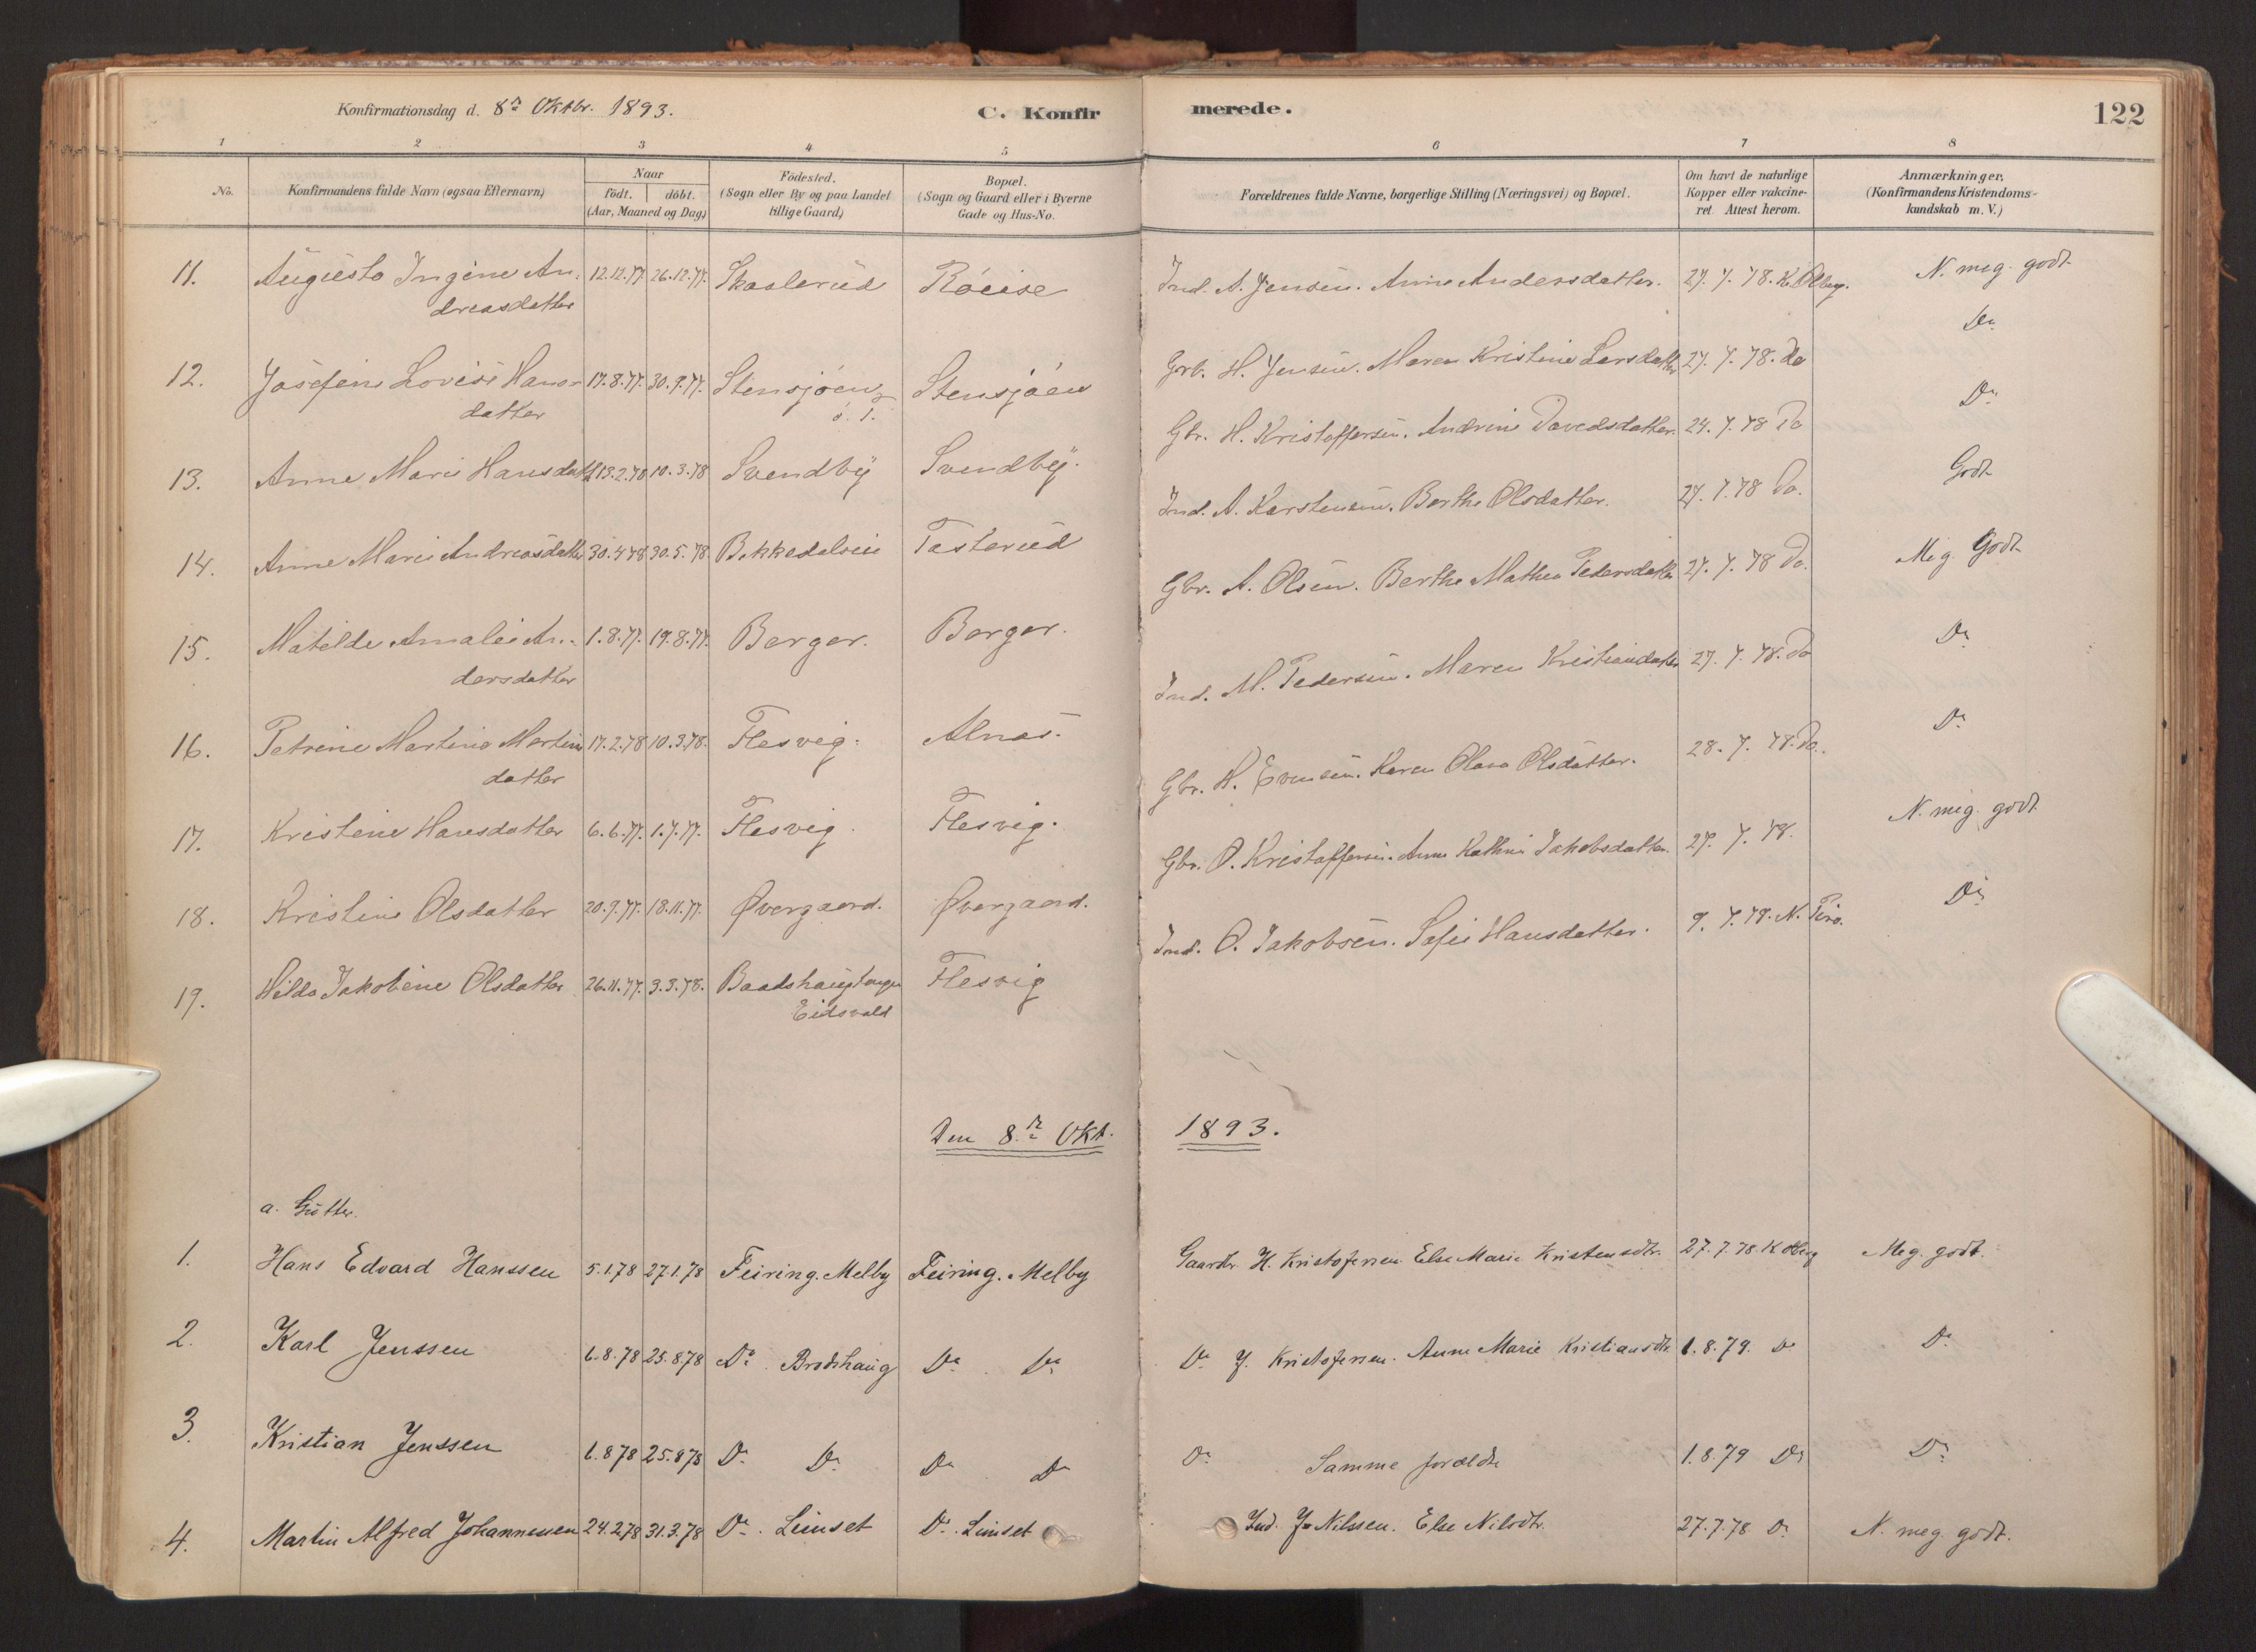 Konfirmationsdag d. 8de Oktbr. 1893.
C. Konfirmerede.
122
1 2 3 4 5 6 7 8
No.
Konfirmandens fulde Navn (ogsaa Efternavn)
Naar
födt. döbt.
(Aar, Maaned og Dag)
Födested.
(Sogn eller By og paa Landet
tillige Gaard)
Bopæl.
(Sogn og Gaard eller i Byerne
Gade og Hus-No.
Forældrenes fulde Navne, borgerlige Stilling (Næringsvei) og Bopæl.
Om havt de naturlige
Kopper eller vakcine-
ret. Attest herom.
Anmærkninger,
(Konfirmandens Kristendoms-
kundskab m. V.)
11. Augusta Ingine An- 12.12.77 26.12.77. Skaalerud Ind. A. Jensen. Anne Andersdatter. 27.7.78. K. Olberg. N. meg. godt
dreasdatter
12. Josefine Lovise Hans- 17.8.77. 30.9.77. Stensjöen Stensjöen Grb. H. Jensen. Maren Kristine Larsdatter 27.7.78. Do Do
datter
13. Anne Marie Hansdatt 13.2.78 10.3.78 Svendby Svendby. Gbr. H. Kristoffersen. Andrine Davidsdatter. 24.7.78 Do Do
14. Anne Marie Andreasdatter 30.4.78 30.5.78. Bekkedalseie Tosterud Ind. A. Karstensen. Berthe Olsdatter. 27.7.78 Do. Godt
15. Matilde Amalie An- 1.8.77. 19.8.77. Berger. Berger. Gbr. A. Olsen. Berthe Mathea Pedersdatter 27.7.78 Do. Meg. Godt
dersdatter
16. Petrine Martine Martins 17.2.78 10.3.78. Flesvig. Alnæs. Ind. M. Pedersen. Maren Kristiansdatter 27.7.78. Do Do
datter
17. Kristine Hansdatter 6.6.77. 1.7.77. Flesvig. Flesvig. Gbr. H. Evensen. Karen Olava Olsdatter. 28.7.78. Do. Do
18. Kristine Olsdatter 20.9.77. 18.11.77. Øvergaard. Øvergaard. Gbr. O. Kristoffersen. Anne Kathrine Jakobsdatter. 27.7.78. N. meg. godt
19. Hilda Jakobine Olsdatter 26.11.77. 3.3.78. Flesvig Ind. O. Jakobsen. Sofie Hansdatter. 9.7.78. N. Do
Eidsvold
Den 8de Okt. 1893.
a. Gutter.
1. Hans Edvard Hanssen 5.1.78 27.1.78 Feiring. Melby Feiring. Melby Gaardbr. H. Kristofersen Else Marie Kristensdtr. 27.7.78. K. Olberg Meg. godt.
2. Karl Jenssen 6.8.78 25.8.78 Do. Brodshaug Do. Do Do J. Kristofersen. Anne Marie Kristiansdtr. 1.8.79. Do Do
3. Kristian Jenssen 6.8.78 25.8.78 Do Do Do Do Do Samme foreldre 1.8.79 Do Do
4. Martin Alfred Johannessen 24.2.78 31.3.78 Do. Linset Do. Linset Ind. J. Nilssen. Else Nilsdtr. 27.7.78 Do N. meg. godt.